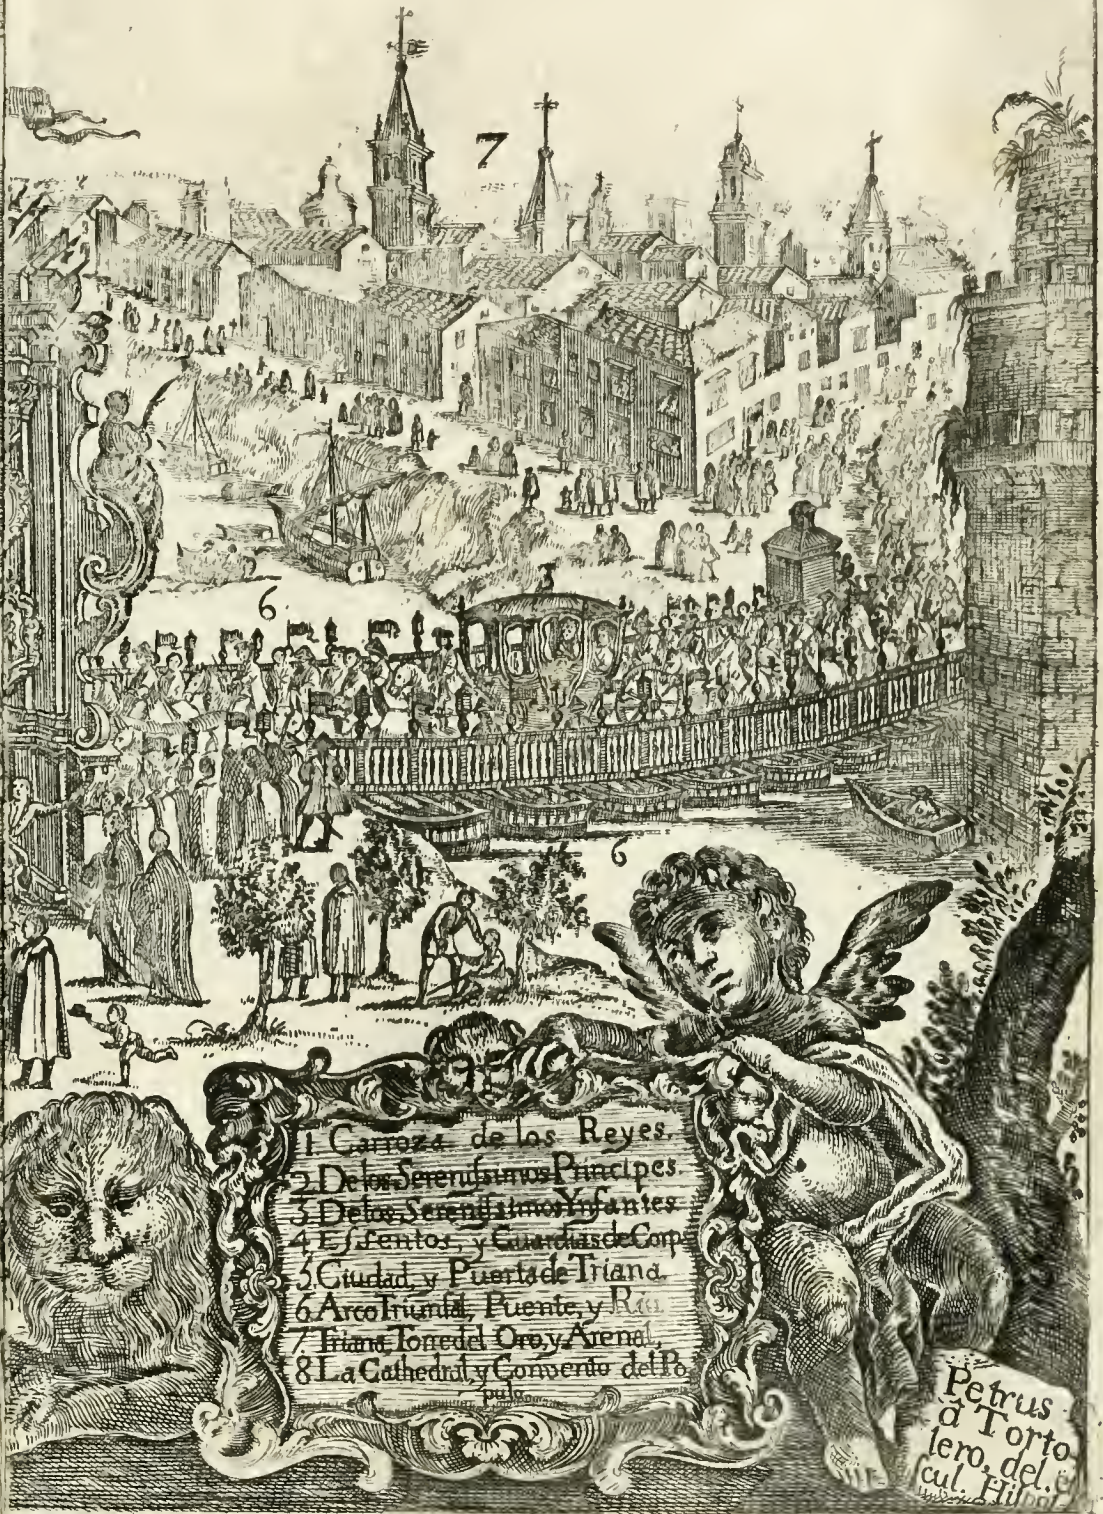 7
3
6
6
1 Carroza de los Reyes.
2. De los Serenissimos Principes.
3. De los Serenissimos Ynfantes
4. Essentos, y Guardias de Corps
5. Ciudad, y Puerta de Triana.
6. Arco Triunfal, Puente, y Rio
7 Triana Torre del Oro, y Arenal,
8. La Cathedral, y Convento del Po
pulo
Petrus
â Torto
lero, del. è
cul. Hispal